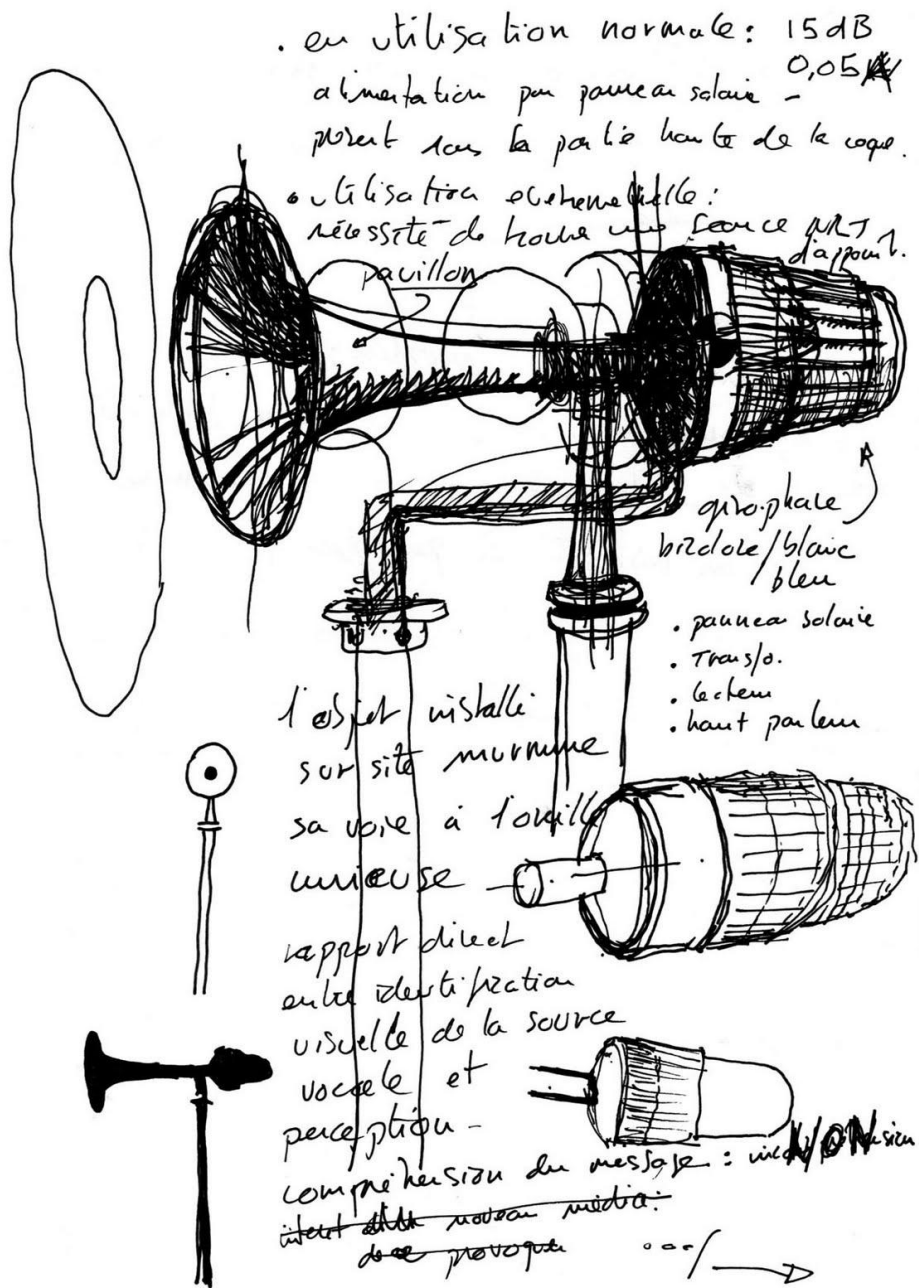 . en utilisation normale : 15 dB
0,05
alimentation par panneau solaire -
présent sous la partie haute de la coque.
. utilisation evenementielle :
nécessité de trouver une source NRJ
d'appoint.
pavillon
gyrophare
bicolore/blanc
/bleu
. panneau solaire
. Transfo.
. lecteur
. haut parleur
l'objet installé
sur site murmure
sa voie à l'oreille
curieuse
rapport direct
entre identification
visuelle de la source
vocale et
perception -
compréhension du message : NON
nouveau média.
provoque
...